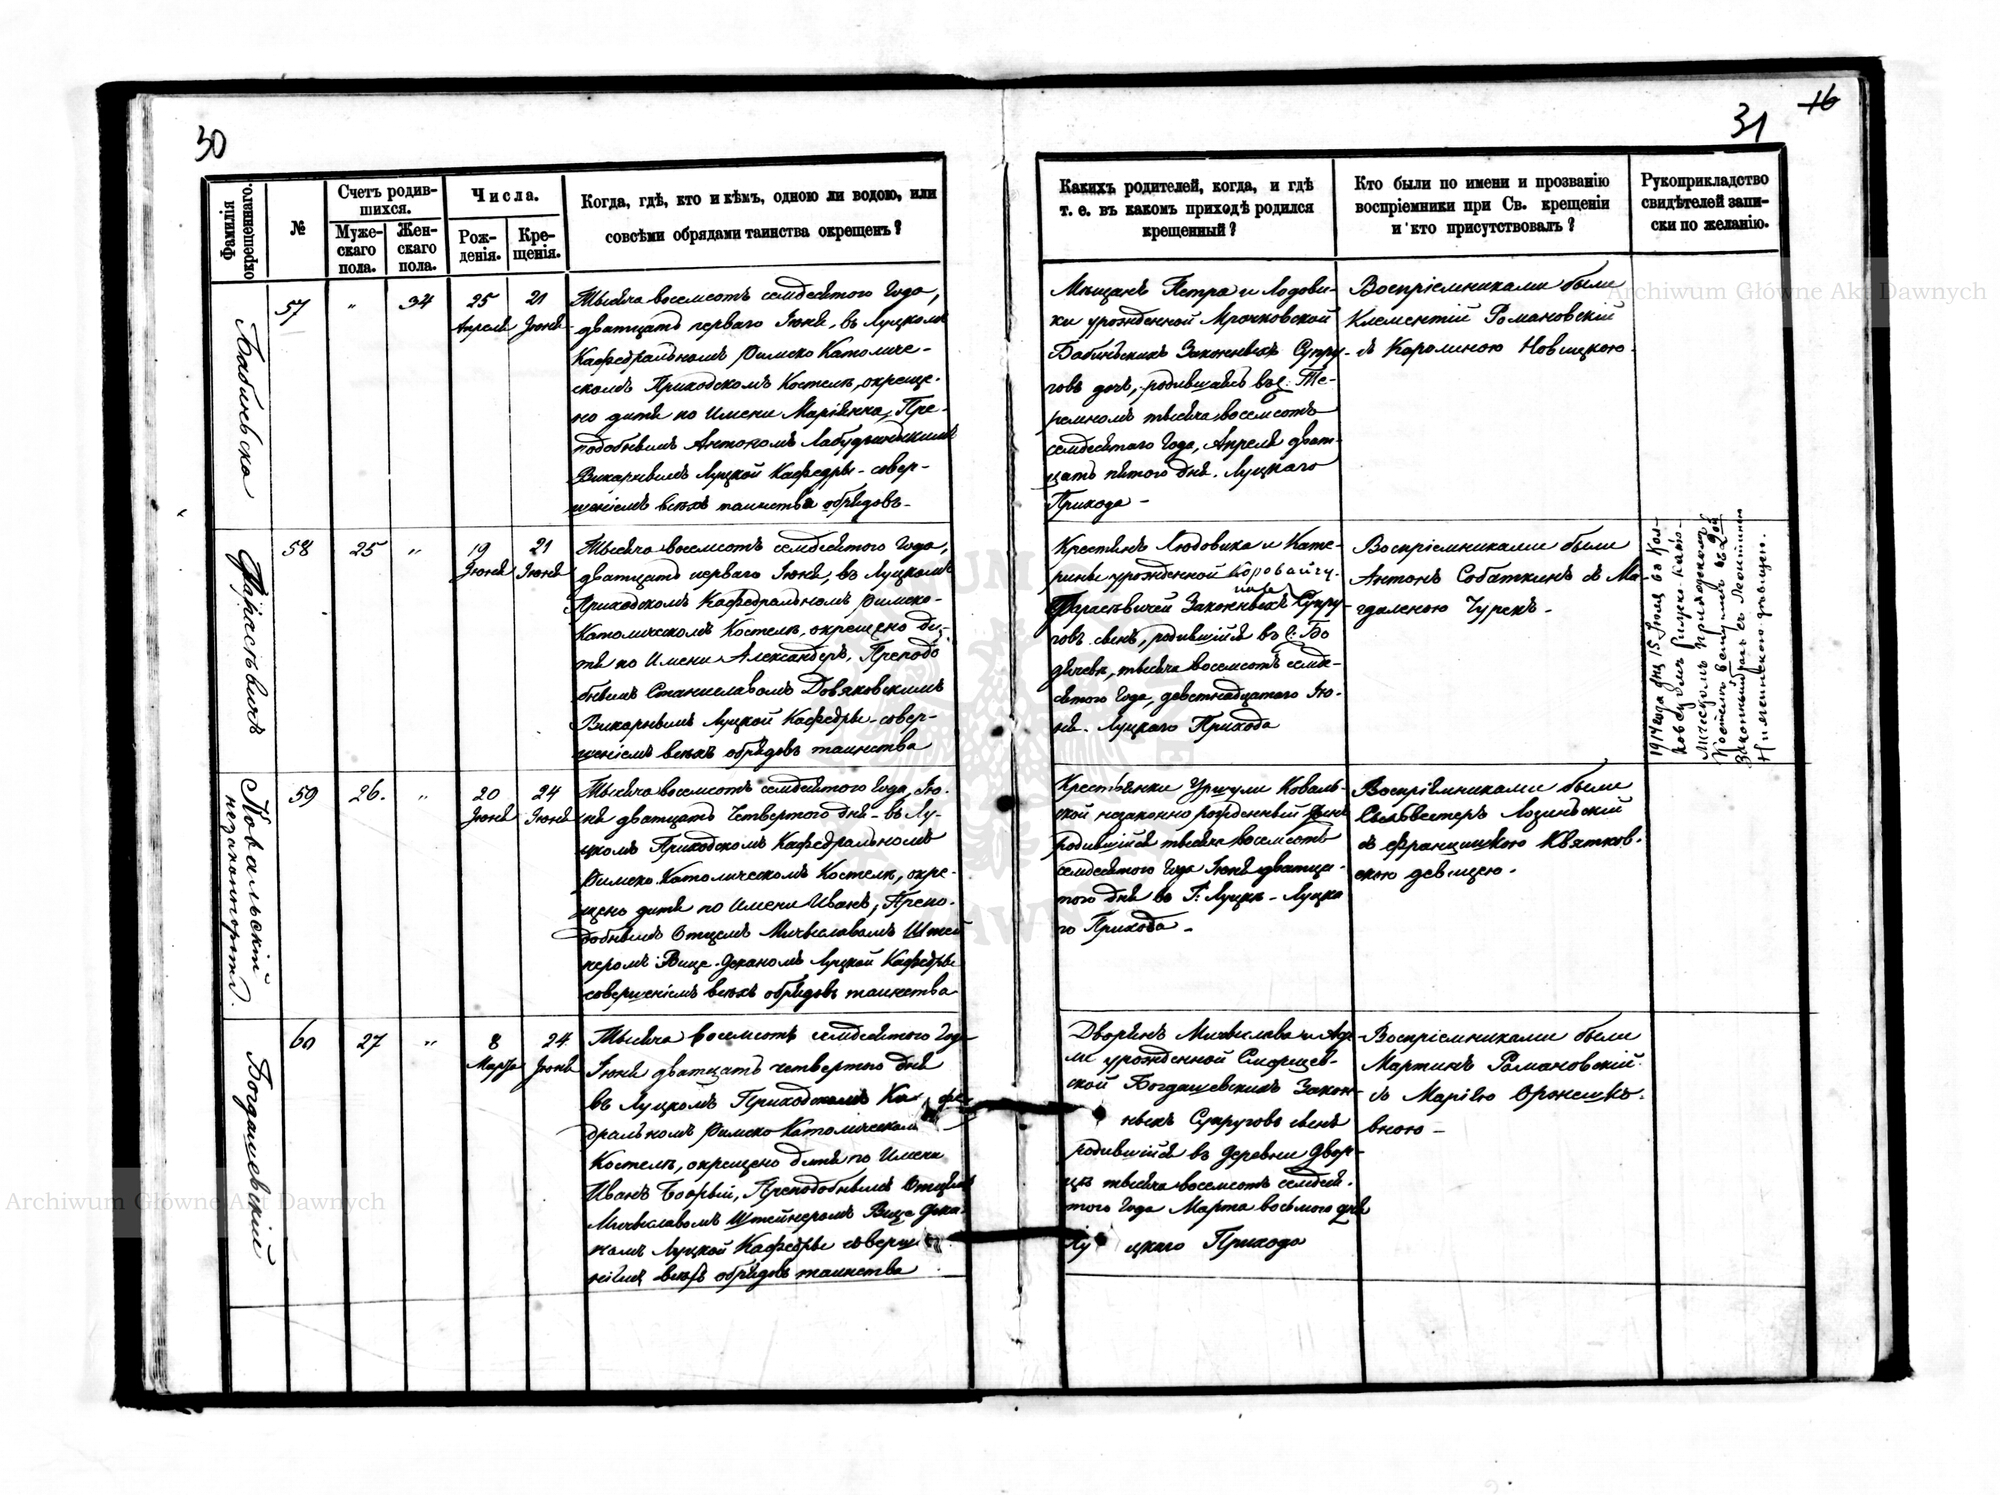 30
Фамилія окрещеннаго.
№
Счетъ родив-
шихся.
Муже-
скаго
пола.
Жен-
скаго
пола.
Числа.
Рож-
денія.
Кре-
щенія.
Когда, гдѣ, кто и кѣмъ, одною ли водою, или
совсѣми обрядами таинства окрещенъ?
Бабинѣска
57
"
34
25
Апреля
21
Іюня
Тысяча восемсотъ семдесятого Года,
дватцать перваго Іюня, въ Луцкомъ
Кафедральномъ Римско Католиче-
скомъ Приходскомъ Костелѣ, окреще-
но дитя по Имени Маріянна, Пре-
подобнымъ Антономъ
Викарнымъ Луцкой Кафедры - совер-
шеніемъ всѣхъ таинства обрядовъ -
Фарасѣвичъ
58
25
"
19
Іюня
21
Іюня
Тысяча восемсотъ семдесятого Года,
дватцать перваго Іюня, въ Луцкомъ
Приходскомъ Кафедральномъ Римско-
Католическомъ Костелѣ, окрещено ди-
тя по Имени Александеръ, Преподо
бнымъ Станиславомъ Довяковскимъ
Викарнымъ Луцкой Кафедры - совер-
шеніемъ всѣхъ обрядовъ таинства
Ковальскій
59
26.
"
20
Іюня
24
Іюня
Тысяча восемсотъ семдесятого Года, Ію-
ня дватцать Четвертого дня - въ Лу-
цкомъ Приходскомъ Кафедральномъ
Римско Католическомъ Костелѣ, окре-
щено дитя по Имени Иванъ, Препо-
добнымъ Отцемъ Мичѣславомъ Штей
неромъ Вице-Деканомъ Луцкой Кафедры
совершеніемъ всѣхъ обрядовъ таинства
Богдашевскій
60
27
"
8
Марта
24
Іюня
Тысяча восемсотъ семдесятого Года
Іюня дватцать четвертого дня
въ Луцкомъ Приходскомъ Кафе
дральномъ Римско Католическомъ
Костелѣ, окрещено дитя по Имени
Иванъ Преподобнымъ Отцемъ
Мичѣславомъ Штейнеромъ Вице Дека-
номъ Луцкой Кафедры соверш
ніемъ всѣхъ обрядовъ таинства
16
31
Какихъ родителей, когда, и гдѣ
т. е. въ какомъ приходѣ родился
крещенный?
Кто были по имени и прозванію
воспріемники при Св. крещеніи
и кто присутствовалъ?
Рукоприкладство
свидѣтелей запи-
ски по желанію.
Мѣщанъ Петра и Лодови-
ки урожденной Мрочковской
Бабинѣскихъ Законныхъ Супру-
говъ дочь, родившаясь въ с. Те-
ремномъ тысяча восемсотъ
семдесятаго Года, Апреля дват-
цать пятого дня. Луцкаго
Прихода -
Воспріемниками были
Клементій Романовскій
съ Каролиною Новицкою.
Крестянъ Людовика и Кате-
рины урожденной
Фарасѣвичей Законныхъ Супру-
говъ сынъ, родившійся въ с:
тысяча восемсотъ семде-
сятого Года, девятнадцатого Ію-
ня. Луцкаго Прихода
Воспріемниками были
Антонъ Собаткинъ съ Ма-
гдаленою Чурекъ -
1914 года дня 15 Іюля въ
Римско-Като-
лическомъ Приходскомъ
Костелѣ вступилъ въ 2ой
Законный бракъ съ
дѣвицею.
Крестьянки Уршули Коваль-
ской незаконно рожденный Сынъ
родившійся тысяча восемсотъ
семдесятого Года Іюня дватца-
того дня въ Г: Луцкѣ - Луцка
го Прихода -
Воспріемниками были
Сильвестеръ Лозинѣскій
съ Францишкою Квятков-
скою дѣвицею.
Дворянъ Мичѣслава и
урожденной
ской Богдашевскихъ Закон-
ныхъ Супруговъ сынъ
родившійся въ деревни Двор-
цѣ тысяча восемсотъ семдеся-
того Года Марта восьмого дня
Лу цкаго Прихода
Воспріемниками были
Мартинъ Романовскій
съ Маріею Оржешко-
вною -
Archiwum Główne Akt Dawnych
Archiwum Główne Akt Dawnych